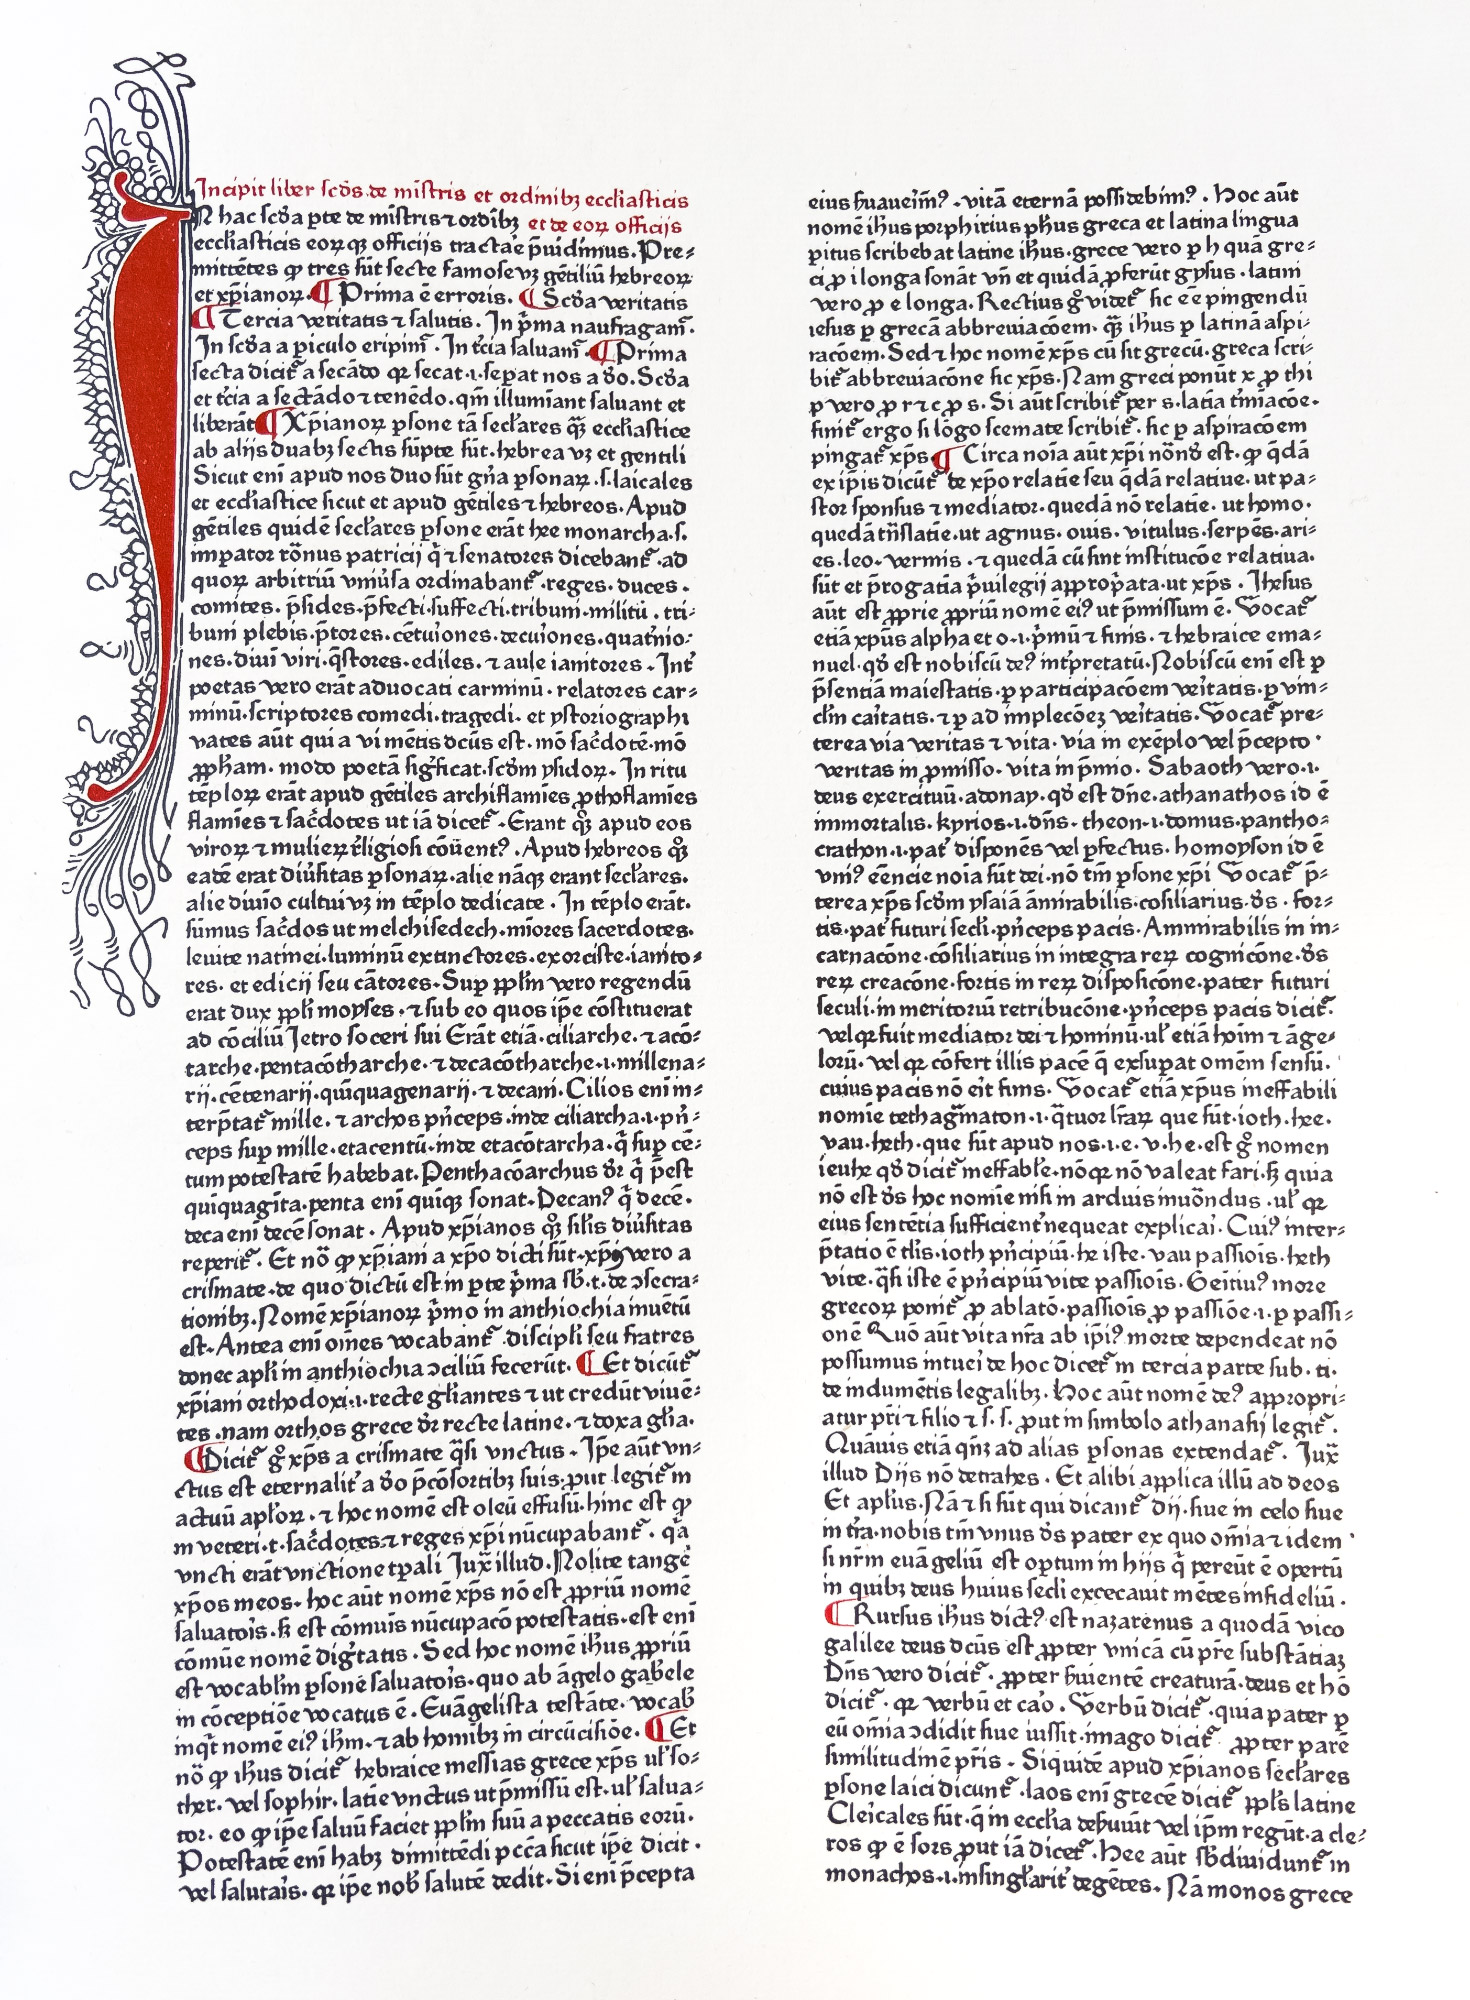 Incipit liber scd̄s de mīstris et ordinibꝫ eccliasticis
In hac scd̄a pte de mīstris ⁊ ordībꝫ et de eoꝝ officijs
eccliasticis eoꝝqꝫ officijs tractāe p̄uidimus. Pre⸗
mittētes ꝙ tres sūt secte famose vꝫ gētiliū hebreoꝝ
et xp̄ianoꝝ. ¶ Prima ē erroris. ¶ Scd̄a veritatis
¶ Tercia veritatis ⁊ salutis. In p̄ma naufragam̄.
In scd̄a a piculo eripim̄. In tc̄ia saluam̄. ¶ Prima
secta dicit᷑ a secādo qꝛ secat .i. sepat nos a do. Scd̄a
et tc̄ia a sectādo ⁊ tenēdo. qm̄ illumīant saluant et
liberāt ¶ Xp̄ianoꝝ ꝑsone tā sec̄lares qꝫ̄ eccliastice
ab alijs duabꝫ sectis sūpte sūt. hebrea vꝫ et gentili
Sicut enī apud nos duo sūt gn̄a ꝑsonaꝝ .s. laicales
et eccliastice sicut et apud gētiles ⁊ hebreos. Apud
gētiles quidē sec̄lares ꝑsone erāt hee monarcha .s.
impator rōnus patricij q̄ ⁊ senatores dicebant᷑ . ad
quoꝝ arbitriū vniūsa ordinabant᷑ . reges . duces .
comites . p̄sides . p̄fecti . suffecti . tribuni . militū . tri⸗
buni plebis . p̄tores . cētuīones . decuīones . quatnio⸗
nes . diuī viri . q̄stores . ediles . ⁊ aule ianitores . Int᷑
poetas vero erāt aduocati carminū . relatores car⸗
minū . scriptores comedi . tragedi . et ystoriographi
vates aūt qui a vi mētis dc̄us est . mō sac̄dotē . mō
ꝓpham . modo poetā sigficat . scd̄m ysidoꝝ . In ritu
tēploꝝ erāt apud gētiles archiflamīes ꝓthoflamīes
flamīes ⁊ sac̄dotes ut iā dicet᷑ . Erant qꝫ̊ apud eos
viroꝝ ⁊ mulieꝝ r̄ligiosi cōuentꝰ . Apud hebreos qꝫ̊
eadē erat diūsitas ꝑsonaꝝ . alie nāqꝫ erant sec̄lares.
alie diuīo cultui vꝫ in tēplo dedicate . In tēplo erāt.
sūmus sac̄dos ut melchisedech . mīores sacerdotes.
leuite natinei . luminū extinctores . exorciste . ianito⸗
res . et edicij seu cātores . Sup ꝓplm vero regendū
erat dux ꝓpli moyses . ⁊ sub eo quos ip̄e cōstituerat
ad cōciliū Jetro soceri sui Erāt etiā . ciliarche . ⁊ acō⸗
tarche . pentacōtharche . ⁊ decacōtharche .i. millena⸗
rij . cētenarij . quīquagenarij . ⁊ decani . Cilios enī in⸗
terp̄tat᷑ mille . ⁊ archos pn̄ceps . inde ciliarcha .i. pn̄⸗
ceps sup mille . etacentū . inde etacōtarcha . q̄ sup cē⸗
tum potestatē habebat . Penthacōarchus dr̄ q̄ p̄est
quīquagīta . penta enī quīqꝫ sonat . Decanꝰ q̄ decē.
deca enī decē sonat . Apud xp̄ianos qꝫ̊ silis diūsitas
reperit᷑ . Et nō ꝙ xp̄iani a xp̄o dicti sūt . xp̄s vero a
crismate . de quo dictū est in ꝑte p̄ma sb̄ .t. de ↄsecra⸗
tionibꝫ . Nomē xp̄ianoꝝ p̄mo in anthiochia inuētū
est . Antea enī oīnes vocabant᷑ . discipli seu fratres
donec apli in anthiochia ↄciliū fecerūt. ¶ Et dicūt᷑
xp̄iani orthodoxi .i. recte gliantes ⁊ ut credūt viuē⸗
tes . nam orthos grece dr̄ recte latine . ⁊ doxa glia.
¶ Dicit᷑ g̊ xp̄s a crismate q̄si vnctus . Ip̄e aūt vn⸗
ctus est eternalit᷑ a do p̄cōsortibꝫ suis . ꝓut legit᷑ in
actuū aploꝝ . ⁊ hoc nomē est oleū effusū . hinc est ꝙ
in veteri .t. sac̄dotes ⁊ reges xp̄i nūcupabant᷑ . qa
vncti erāt vnctione tꝑali Iux̄ illud . Nolite tangē
xp̄os meos . hoc aūt nomē xp̄s nō est ꝓpriū nomē
saluatoīs . sꝫ est cōmuīs nūcupacō potestatis . est enī
cōmūe nomē digtatis . Sed hoc nomē ih̄us ꝓpriū
est vocablm ꝑsone saluatoīs . quo ab āgelo gabēle
in cōceptiōe vocatus ē . Euāgelista testāte . vocab̄
inqt nomē eiꝰ ih̄m . ⁊ ab homībꝫ in circūcisiōe. ¶ Et
nō ꝙ ih̄us dicit᷑ hebraice messias grece xp̄s ul̄ so⸗
ther . vel sophir . latīe vnctus ut p̄missū est . ul̄ salua⸗
tor . eo ꝙ ip̄e saluū faciet ꝓplm suū a peccatis eorū.
Potestatē enī habꝫ dimittēdi pcc̄a sicut ip̄e dicit .
vel salutaīs . qꝛ ip̄e nob̄ salutē dedit . Si enī p̄cepta
eius suaueimꝰ . vitā eternā possidebimꝰ . Hoc aūt
nomē ih̄us porphirius ph̄us greca et latina lingua
pitus scribebat latine ih̄us . grece vero ꝑ h quā gre⸗
ci ꝑ i longa sonāt vn̄ et quidā ꝓferūt gysus . latini
vero ꝑ e longa . Rectius g̊ videt᷑ sic eē pingendū
iesus ꝑ grecā abbreuiacōem . qꝫ̄ ih̄us ꝑ latinā aspi⸗
racōem . Sed ⁊ hoc nomē xp̄s cū sit grecū . greca scri⸗
bit᷑ abbreuiacōne sic xp̄s . Nam greci ponūt x ꝓ thi
p vero ꝓ r ⁊ c ꝓ s . Si aūt scribit᷑ per s . latīa tm̄iacōe.
finit᷑ ergo si lōgo scemate scribit᷑ . sic ꝑ aspiracōem
pingat᷑ xp̄s ¶ Circa noīa aūt xp̄i nōnd̄ est . ꝙ qdā
ex ip̄is dicūt᷑ de xp̄o relatīe seu qdā relatiue . ut pa⸗
stor sponsus ⁊ mediator . quedā nō relatīe . ut homo .
quedā trn̄slatīe . ut agnus . ouis . vitulus . serpēs . ari⸗
es . leo . vermis . ⁊ quedā cū sint institucōe relatiua.
sūt et p̄rogatīa p̄uilegij appropata . ut xp̄s . Ihesus
aūt est ꝓprie ꝓpriū nomē eiꝰ ut p̄missum ē . Vocat᷑
etiā xp̄us alpha et o .i. p̄mū ⁊ finis . ⁊ hebraice ema⸗
nuel . qd̄ est nobiscū deꝰ int̄pretatū . Nobiscū enī est ꝑ
p̄sentiā maiestatis . ꝑ participacōem veītatis . ꝑ vin⸗
clm caītatis . ⁊ ꝑ ad implecōeꝫ veītatis . Vocat᷑ pre⸗
terea via veritas ⁊ vita . via in exēplo vel p̄cepto .
veritas in ꝓmisso . vita in p̄mio . Sabaoth vero .i.
deus exercituū . adonay . qd̄ est dn̄e . athanathos id ē
immortalis . kyrios .i. dn̄s . theon .i. domus . pantho⸗
crathon .i. pat᷑ disponēs vel ꝑfectus . homoyson id ē
vniꝰ eēncie noīa sūt dei . nō tm̄ ꝑsone xp̄i Vocat᷑ p̄⸗
terea xp̄s scd̄m ysaiā āmirabilis . cōsiliarius . ds̄ . for⸗
tis . pat᷑ futuri secli . pn̄ceps pacis . Ammirabilis in in⸗
carnacōne . cōsiliarius in integra reꝝ cognicōne . ds̄
reꝝ creacōne . fortis in reꝝ disposicōne . pater futuri
seculi . in meritoriū retribucōne . pn̄ceps pacis dicit᷑.
vel qꝛ fuit mediator dei ⁊ hominū . ul̄ etiā hoīm ⁊ āge⸗
lorū . vel qꝛ cōfert illis pacē q̄ exsupat omēm sensū .
cuius pacis nō eīt finis . Vocat᷑ etiā xp̄us ineffabili
nomīe tethagm̄aton .i. qtuor lr̄aꝝ que sūt . ioth . he .
vau . heth . que sūt apud nos .i. e . v . he . est g̊ nomen
ieuhe qd̄ dicit᷑ ineffable . nō qꝛ nō valeat fari . sꝫ quia
nō est ds̄ hoc nomīe nisi in arduis inuōndus . ul̄ qꝛ
eius sentētia sufficient᷑ nequeat explicaī . Cuiꝰ inter⸗
p̄tatio ē tlīs . ioth pn̄cipiū . he iste . vau passiōis . heth
vite . q̄si iste ē pn̄cipiū vite passiōis . Geītiuꝰ more
grecoꝝ ponit᷑ ꝓ ablatō . passiōis ꝓ passiōe .i. ꝑ passi⸗
onē Quō aūt vita nr̄a ab ip̄iꝰ morte dependeat nō
possumus intueī de hoc dicet᷑ in tercia parte sub . ti.
de indumētis legalibꝫ . Hoc aūt nomē deꝰ appropri⸗
atur pr̄i ⁊ filio ⁊ s . s . ꝓut in simbolo athanasij legit᷑ .
Quāuis etiā qn̄ꝫ ad alias ꝑsonas extendat᷑ . Iux̄
illud Dijs nō detrahes . Et alibi applica illū ad deos
Et aplūs . Nā ⁊ si sūt qui dicant᷑ dij . siue in celo siue
in tr̄a . nobis tm̄ vnus ds̄ pater ex quo oīnia ⁊ idem .
si nr̄m euāgeliū est optum in hijs q̄ pereūt ē opertū
in quibꝫ deus huius secli excecauit mētes infideliū .
¶ Rursus ih̄us dictꝰ est nazarenus a quodā vico
galilee deus dc̄us est ꝓpter vnicā cū pr̄e substātiaꝫ
Dn̄s vero dicit᷑ . ꝓpter suientē creaturā . deus et hō
dicit᷑ . qꝛ verbū et caō . Verbū dicit᷑ . quia pater ꝑ
eū oīnia ↄdidit siue iussit . imago dicit᷑ ꝓpter parē
similitudinē pr̄is . Siquidē apud xp̄ianos sec̄lares
ꝑsone laici dicunt᷑ . laos enī grece dicit᷑ ꝓpls latine
Cleīcales sūt . q̄ in ecclia desuiūt vel ip̄m regūt . a cle⸗
ros ꝙ ē sors ꝓut iā dicet᷑ . Hee aūt sb̄diuidunt᷑ in
monachos .i. in singlarit᷑ degētes . Nā monos grece